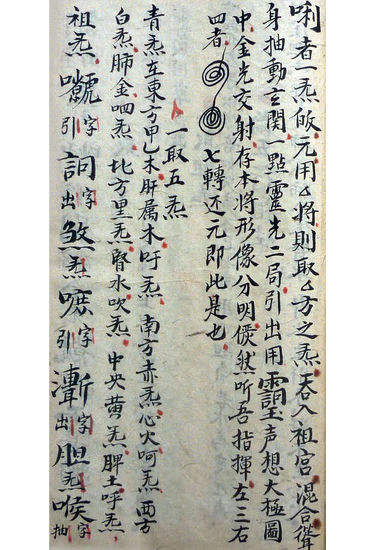 唎者一炁皈元用厶將則取厶方之炁吞入祖宫混合聳
身抽動玄関一點靈光二局引出用声想大極圖
中金光交射存本將形像分明儼然听吾指揮左三右
四者七轉还元即此是也
一取五炁
青炁左東方甲乙木肝属木吁炁南方赤炁心火呵炁西方
白炁肺金呬炁北方黑炁腎水吹炁中央黄炁脾土呼炁
祖炁字引詞字出煞炁嚒字引漸字出胆炁喉字抽